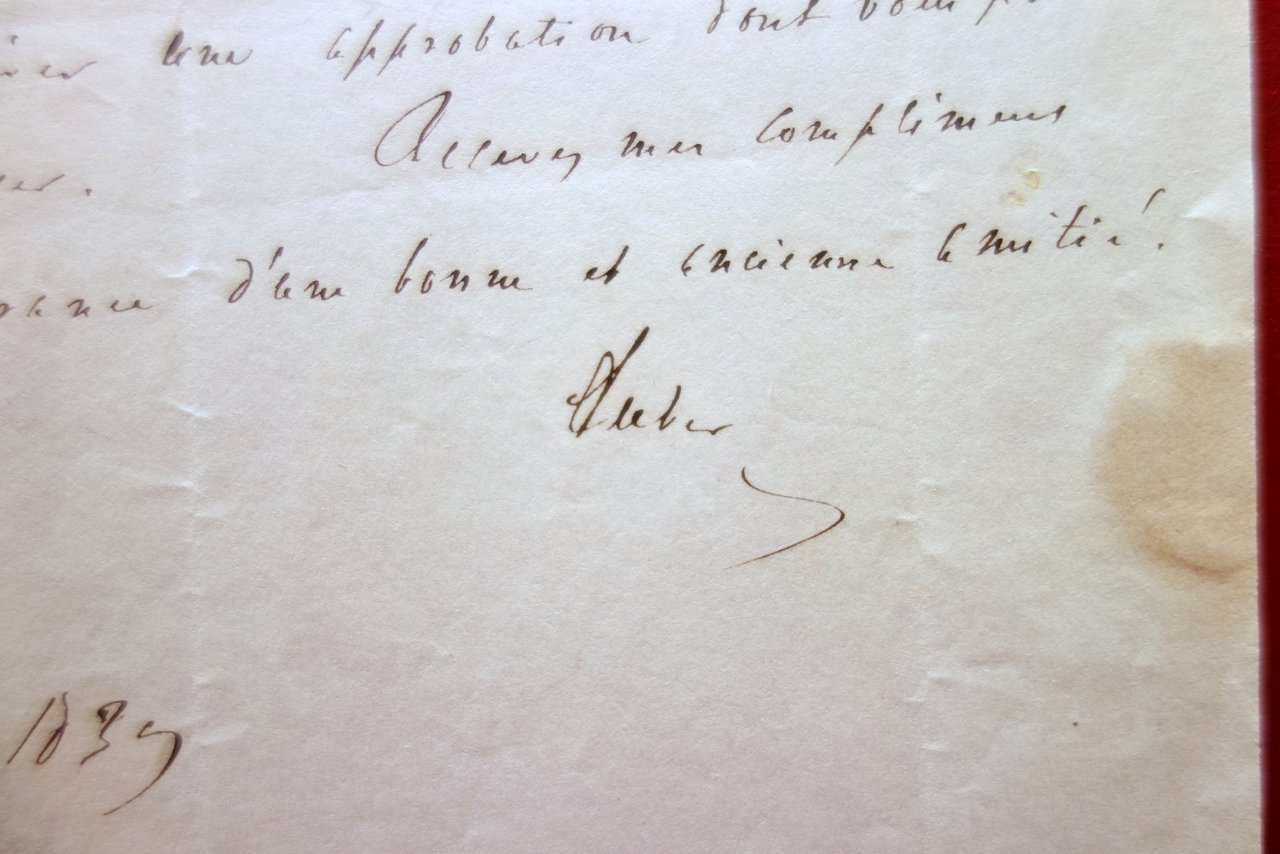 une approbation dont vous
Recevez mes complimens
d'une bonne et ancienne amitié.
Auber
1839